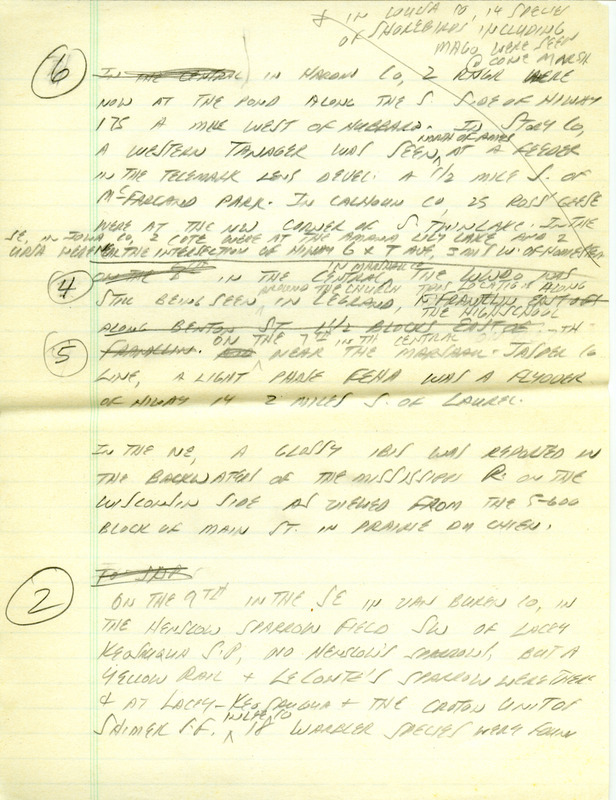 * IN LOUISA CO, 14 SPECIES
OF SHOREBIRDS INCLUDING
MAGO WERE SEEN
@ CONE MARSH
6 IN THE CENTRAL IN HARDIN CO, 2 RNGR WERE
NOW AT THE POND ALONG THE S SIDE OF HIWAY
175 A MILE WEST OF HUBBARD. IN STORY CO,
NORTH OF AMES
A WESTERN TANAGER WAS SEEN ^ AT A FEEDER
IN THE TELEMARK LENS DEVEL. A 1/2 MILE S. OF
McFARLAND PARK. IN CALHOUN CO 25 ROSS' GEESE
WERE AT THE NW CORNER OF S. TWIN LAKE. IN THE
SE, IN IOWA CO, 2 COTE WERE AT THE AMANA LILY LAKE AND 2
WERE THE INTERSECTION OF HIWAY 6 & T AVE, SW OF HOMESTEAD
4 IN THE CENTRAL IN MARSHALL CO THE WAS
STILL BEING SEEN AROUND THE CHURCH THIS LOCATION IS ALONG
IN LEGRAND, N FRANKLIN EAST OF
THE HIGHSCHOOL
ALONG BENTON ST 1 1/2 BLOCKS EAST OF
5 FRANKLIN. ON THE 7TH IN TH CENTRAL
NEAR THE MARSHALL - JASPER CO
LINE, A LIGHT PHASE FEHA WAS A FLYOVER
OF HIWAY 14 2 MILES S. OF LAUREL.
IN THE NE, A GLOSSY IBIS WAS REPORTED IN
THE BACKWATERS OF THE MISSISSIPPI R. ON THE
WISCONSIN SIDE AS VIEWED FROM THE 5-600
BLOCK OF MAIN ST. IN PRAIRIE DU CHIEN.
2 ON THE 9TH IN THE SE IN VAN BUREN CO, IN
THE HENSLOW SPARROW FIELD SW OF LACEY
KEOSAUQUA S.P, NO HENSLOW'S SPARROWS, BUT A
YELLOW RAIL + LECONTE'S SPARROW WERE THERE
& AT LACEY-KEOSAUQUA + THE CROTON UNIT OF
IN LEE CO
SHIMEK S.F. ^ 18 WARBLER SPECIES WERE FOUND